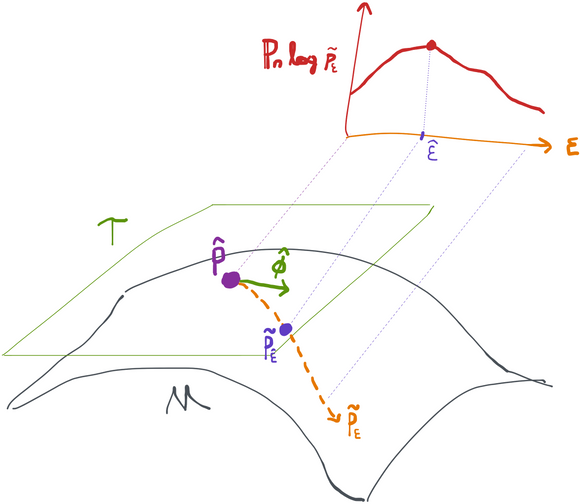 Pₙ log p̃_ε
ε
ε̂
T
P̂
ϕ̂
p̃_ε̂
M
p̃_ε